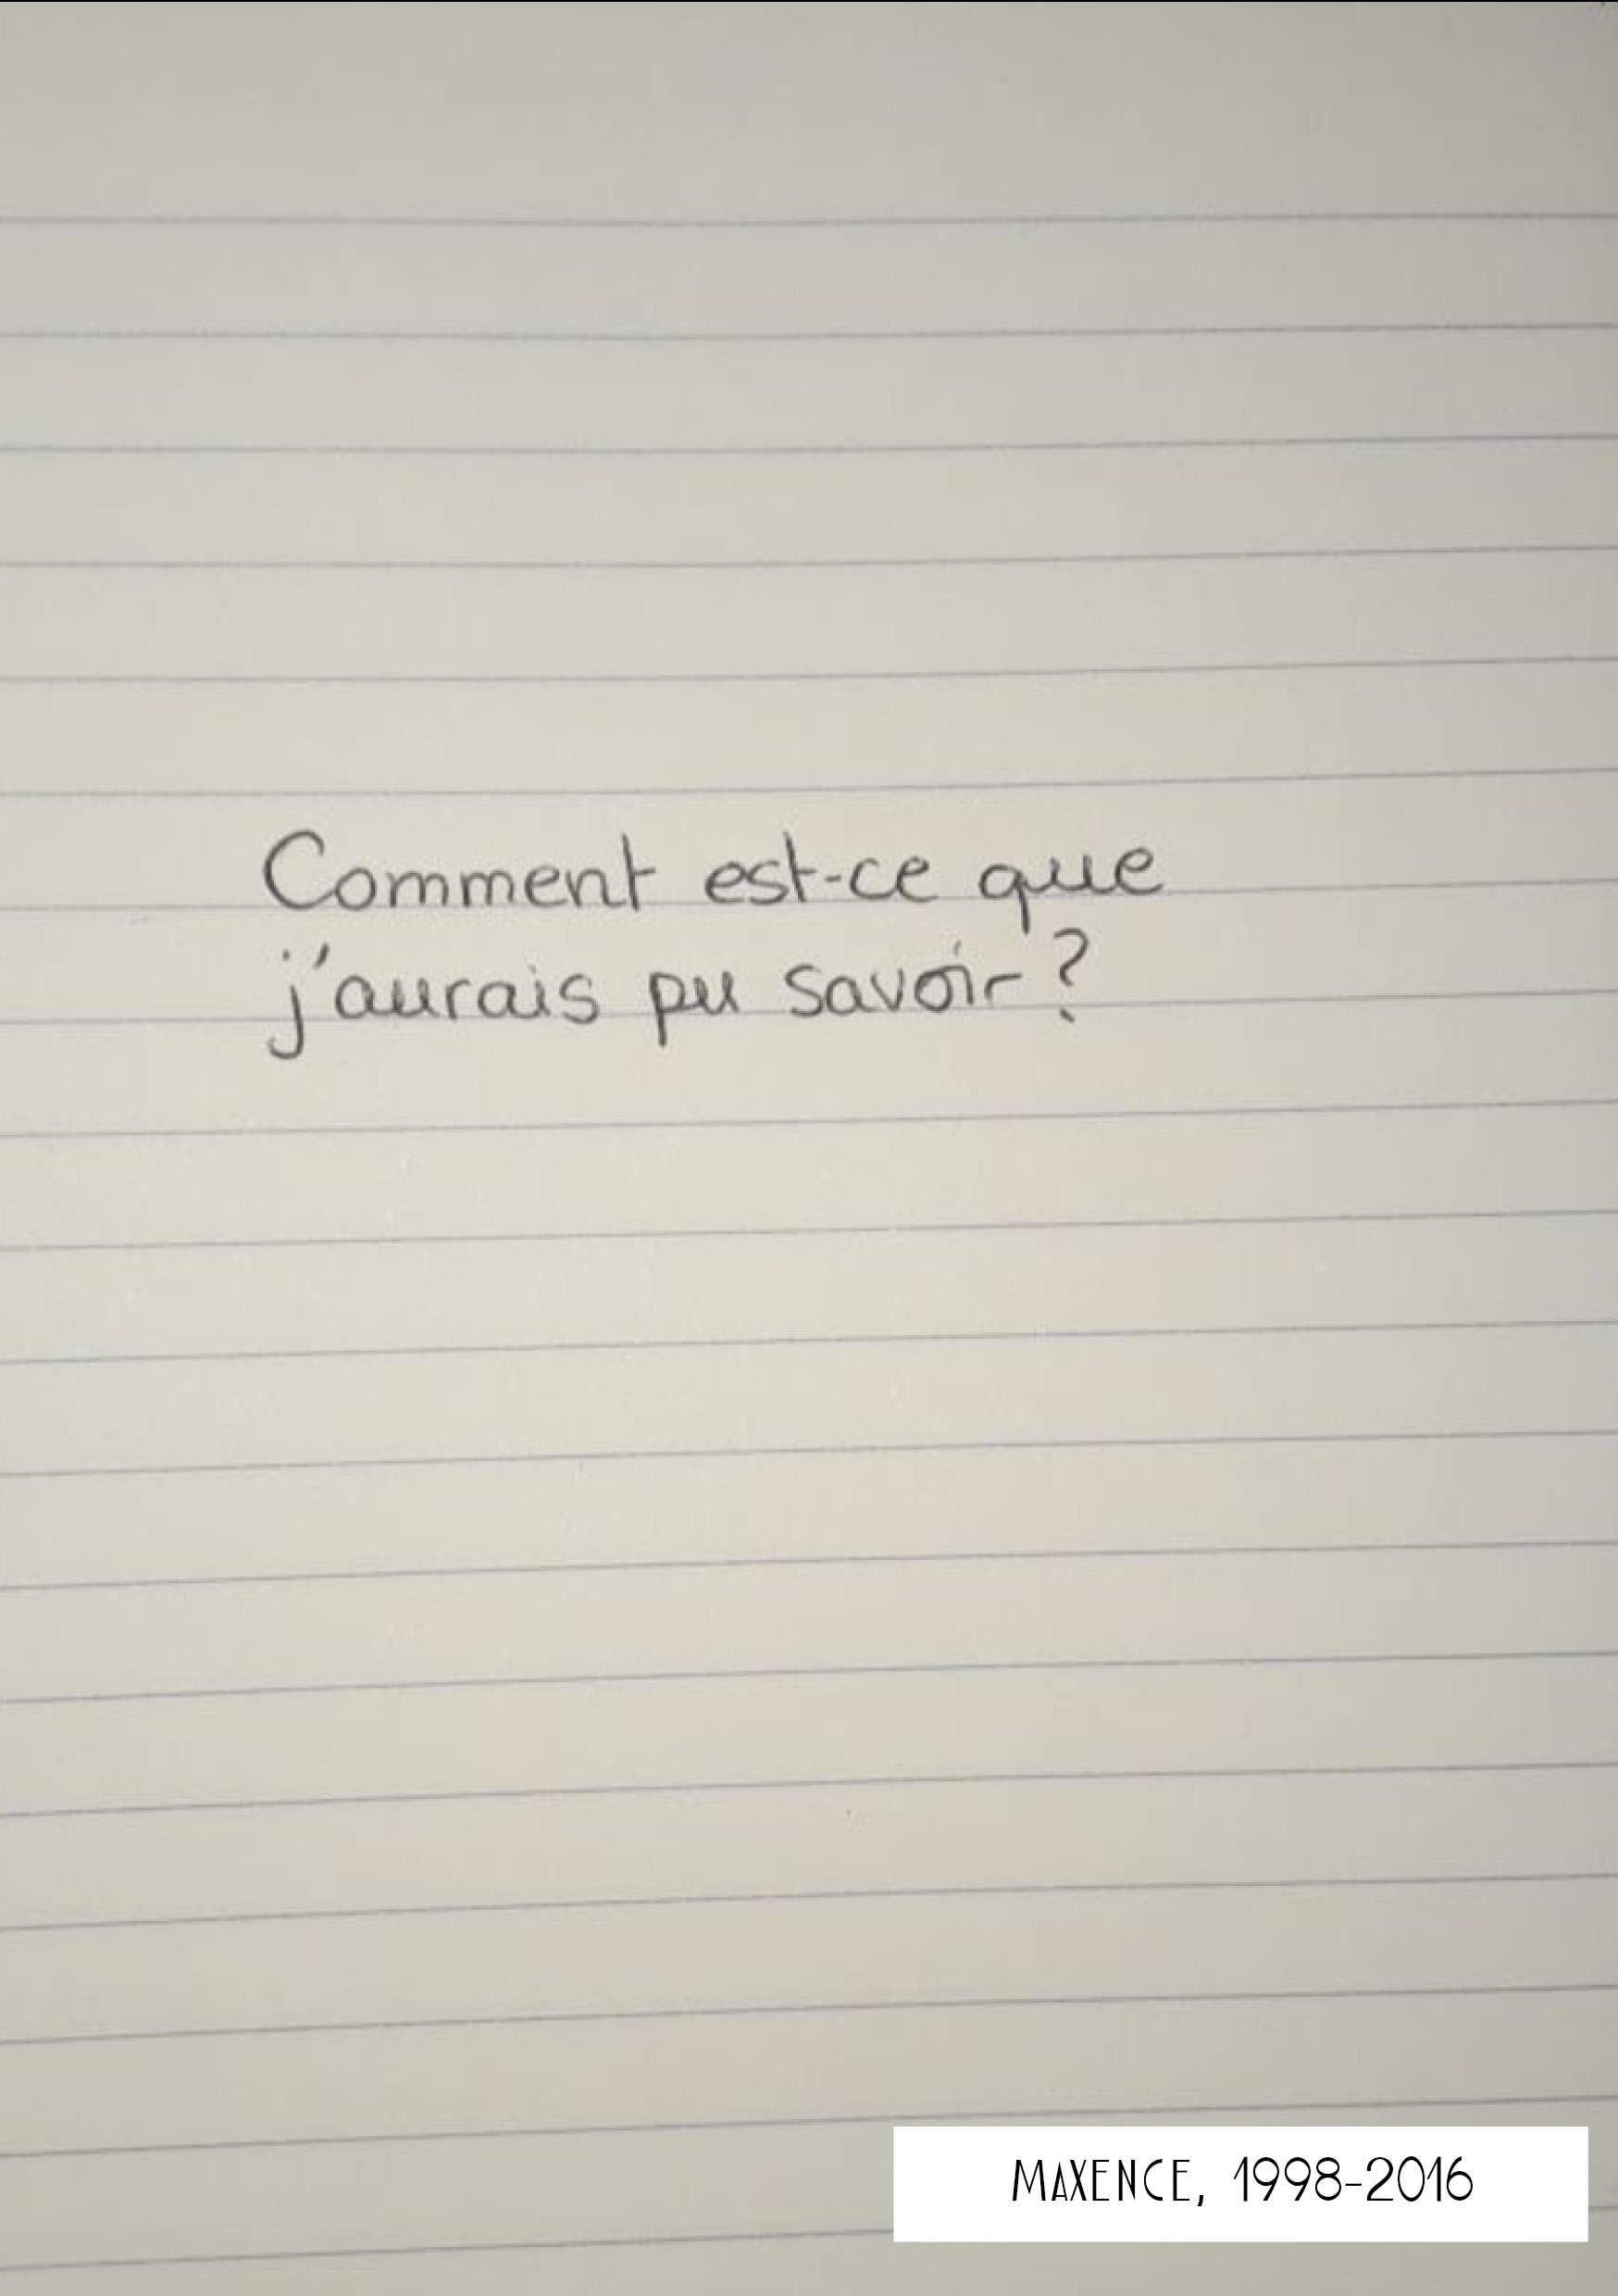 Comment est-ce que
j'aurais pu savoir ?
MAXENCE, 1998-2016